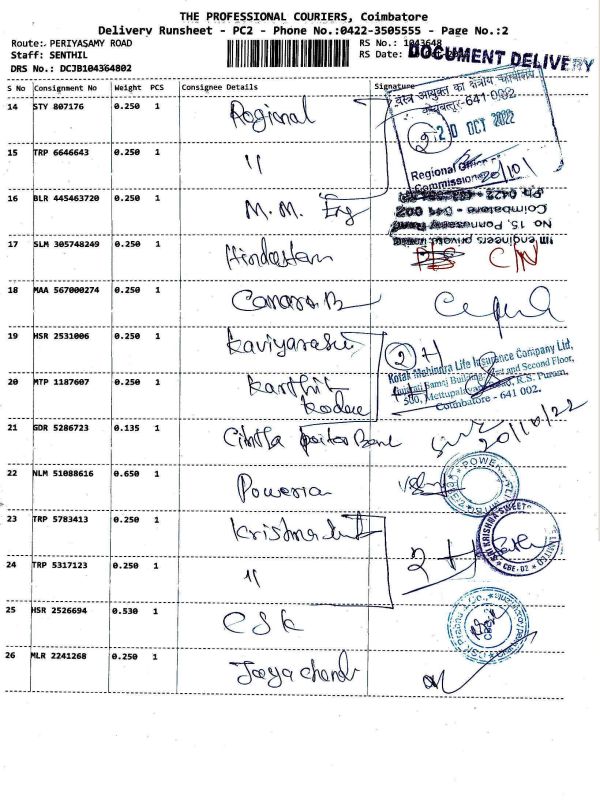 THE PROFESSIONAL COURIERS, Coimbatore
Delivery Runsheet - PC2 - Phone No.:0422-3505555 - Page No.:2
Route: PERIYASAMY ROAD
RS No.: 1043648
Staff: SENTHIL
RS Date:
DOCUMENT DELIVERY
DRS No.: DCJB104364802
S No Consignment No Weight PCS Consignee Details Signature
14 STY 807176 0.250 1 Regional
वस्त्र आयुक्त का क्षेत्रीय कार्यालय
कोयंबत्तूर-641 002
2 20 OCT 2022
Regional Office of
Commissioner
20/10/
15 TRP 6646643 0.250 1 "
16 BLR 445463720 0.250 1 M.M. Eng
Ph: 0422
Coimbatore - 641 002
No. 15, Ponnusamy Road
engineers private limited
17 SLM 305748249 0.250 1 Hindustan
C/N
18 MAA 567000274 0.250 1 Canara.B
19 HSR 2531006 0.250 1 Kaviyarasu
2
Kotak Mahindra Life Insurance Company Ltd,
First and Second Floor,
500, Mettupalayam Road, R.S. Puram,
Coimbatore - 641 002.
20 MTP 1187607 0.250 1 Karthik
Kodak
21 GDR 5286723 0.135 1 Bank
20/10/22
22 NLM 51088616 0.650 1 Poweria
23 TRP 5783413 0.250 1
SRI KRISHNA SWEETS PRIVATE LIMITED
CBE-02
24 TRP 5317123 0.250 1 "
2
25 HSR 2526694 0.530 1 CSK
26 MLR 2241268 0.250 1 Jaya chandr